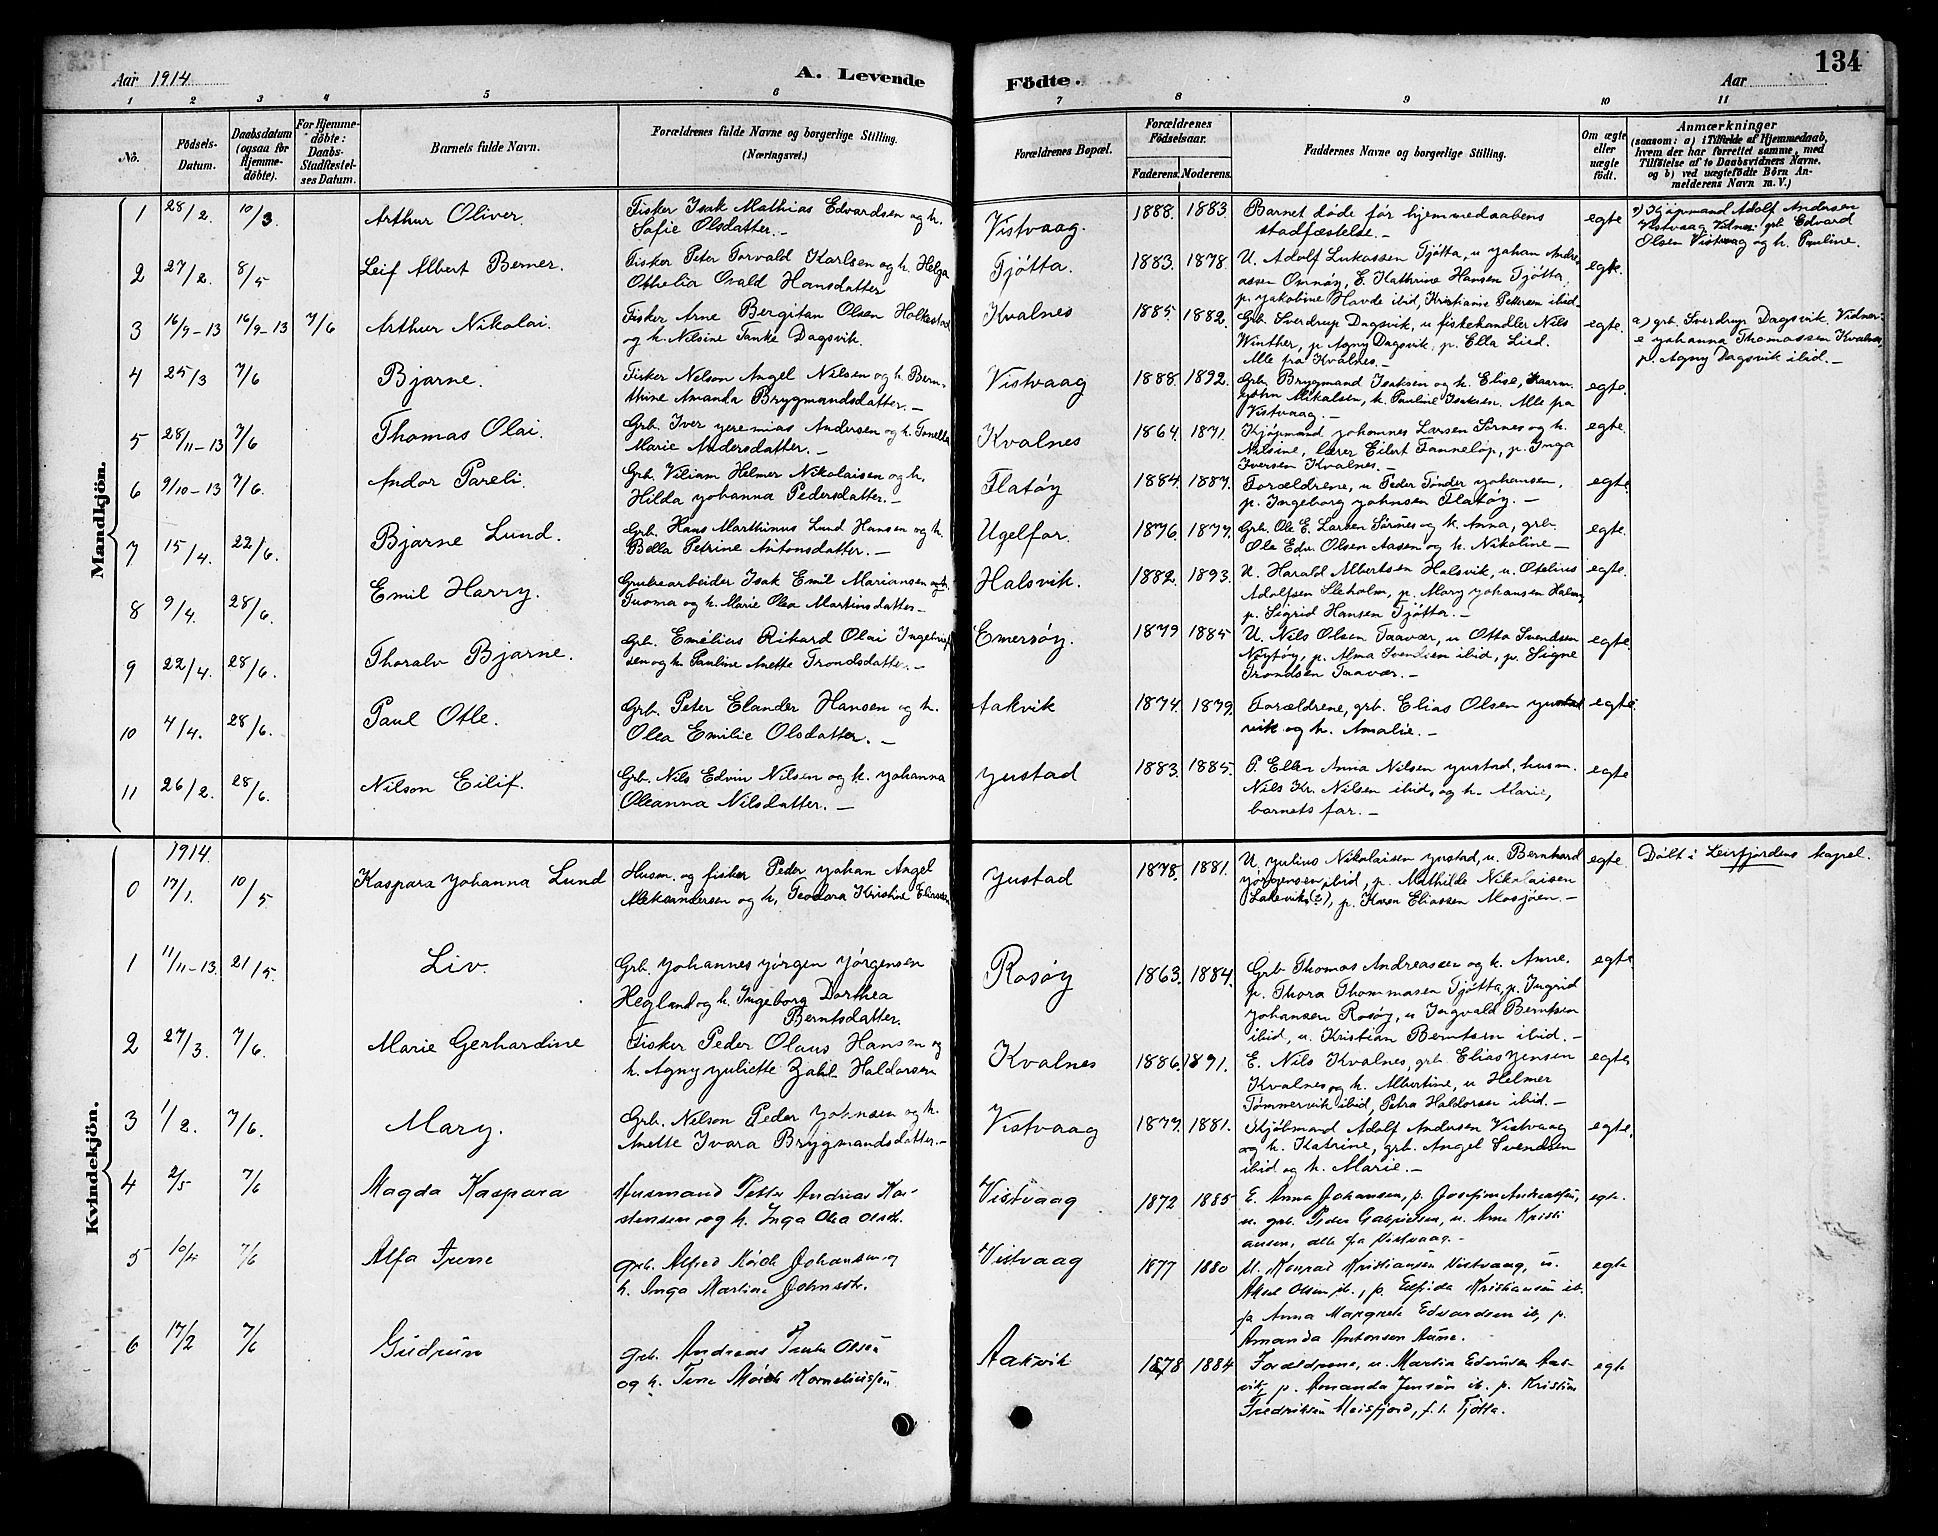 134
Aar 1914
A. Levende
Födte.
Aar
1 2 3 4 5 6 7 8 9 10 11
No.
Födsels-
Datum.
Daabsdatum
(ogsaa för
Hjemme-
döbte).
For Hjemme-
döbte:
Daabs-
Stadfæstel-
ses Datum.
Barnets fulde Navn.
Forældrenes fulde Navne og borgerlige Stilling.
(Næringsvei.)
Forældrenes Bopæl.
Forældrenes
Födselsaar.
Faderens. Moderens.
Faddernes Navne og borgerlige Stilling.
Om ægte
eller
uægte
födt.
Anmærkninger
(saasom: a) i Tilfælde af Hjemmedaab,
hvem der har forrettet samme, med
Tilföielse af to Daabsvidners Navne.
og b) ved uægtefödte Börn An-
melderens Navn m. V.)
Mandkjön.
1 28/2. 10/3. Arthur Oliver.
Fisker Isak Mathias Edvardsen og h.
Sofie Olsdatter.—
Vistvaag. 1888. 1883.
Barnet døde før hjemmedaabens
stadfæstelse.—
egte
Kjøpmand Adolf Andersen
Vistvaag Vidner: grb Edvard
Olsen Vistvaag og h. Pauline.
2 27/2. 8/5 Leif Albert Berner.
Fisker Peter Torvald Karlsen og h. Helga
Othelia Ovald Hansdatter
Tjøtta. 1883. 1878.
U. Adolf Lukassen Tjøtta, u Johan Andre-
assen Omnøy, E. Kathrine Hansen Tjøtta,
p. Jakobine Havde ibid, Kristianie Pettersen ibid.
egte.
3 16/9-13 16/9-13 7/6 Arthur Nikolai.
Fisker Arne Bergitan Olsen Holkestad
og h. Nilsine Tanke Dagsvik.
Kvalnes 1885. 1882.
Grb. Sverdrup Dagsvik, u fiskehandler Nils
Winther, p. Agny Dagsvik, p. Ella Lied.
Alle fra Kvalnes.—
egte.
a) grb. Sverdrup Dagsvik. Vidner:
e Johanna Thomassen Kvalnes,
p. Agny Dagsvik ibid.—
4 25/3 7/6 Bjarne.
Fisker Nelson Angel Nilsen og h. Bern-
thine Amanda Brygmandsdatter.—
Vistvaag 1888. 1892.
Grb. Brygmand Isaksen og h. Elise, Kaarm.
John Mikalsen, h. Pauline Isaksen. Alle fra
Vistvaag.—
egte.
5 28/11-13 7/6 Thomas Olai.
Grb. Iver Jeremias Andersen og h. Tonella
Marie Andersdatter.—
Kvalnes 1864. 1871.
Kjøpmand Johannes Larsen Sørnes og h.
Nilsine, lærer Eilert Fanneløp, p. Inga
Iversen Kvalnes.—
egte.
6 9/10-13 7/6. Andor Pareli.
Grb. Viliam Helmer Nikolaisen og h.
Hilda Johanna Pedersdatter.—
Flatøy 1884. 1887.
Forældrene, u Peder Tønder Johansen,
p. Ingeborg Johnsen Flatøy.—
egte.
7 15/4. 22/6. Bjarne Lund.
Grb. Hans Marthinus Lund Hansen og h.
Bella Petrine Antonsdatter.—
Ugelfor. 1876. 1877.
Grb. Ole E. Larsen Sørnes og h. Anna, grb.
Ole Edv. Olsen Aasen og h. Nikoline—
egte.
8 9/4. 28/6. Emil Harry.
Grubearbeider Isak Emil Mariansen og h.
Tuoma og h. Marie Olea Martinsdatter—
Halsvik. 1882. 1893.
U. Harald Albertsen Halsvik, u. Otelius
Adolfsen Sleholm, p. Mary Johansen Halm,
p. Sigrid Hansen Tjøtta.—
egte.
9 22/4. 28/6. Thoralv Bjarne.
Grb. Emélius Rikard Olai Ingebrigt-
sen og h. Pauline Anette Trondsdatter.—
Emersøy. 1879 1885
U. Nils Olsen Taavær, u Otto Svendsen
Nøytøy, p. Alma Svendsen ibid, p. Signe
Trondsen Taavær.—
egte.
10 4/4. 28/6. Paul Otle.
Grb. Peter Elander Hansen og h.
Olea Emilie Olsdatter.—
Aakvik 1874. 1879.
Forældrene, grb. Elias Olsen Justad
vik og h. Amalie.—
egte.
11 26/2. 28/6. Nilson Eilif.
Grb. Nils Edvin Nilsen og h. Johanna
Oleanna Nilsdatter.—
Justad 1883. 1885.
P. Ellen Anna Nilsen Justad, husm.
Nils Kr. Nilsen ibid, og h. Marie,
barnets far.—
egte
Kvindekjön.
1914.
0 17/1. 10/5 Kaspara Johanna Lund
Husm. og fisker Peder Johan Angel
Aleksandersen og h. Teodora Kristine Eliassen
Justad 1878. 1881.
U. Julius Nikolaisen Justad, u. Bernhard
Jørgensen ibid, p. Mathilde Nikolaisen
Lakeviks(?), p. Karen Eliassen Mosjøen.—
egte.
Døbt i Leirfjordens kapel.
1 11/11-13. 21/5. Liv.
Grb. Johannes Jørgen Jørgensen
Hegland og h. Ingeborg Dorthea
Berntsdatter.
Rosøy 1863. 1884.
Grb Thomas Andreassen og h. Anne.
p. Thora Thommasen Tjøtta, p. Ingrid
Johansen Rosøy, u Ingvald Berntsen
ibid, u. Kristian Berntsen ibid.—
egte.
2 27/3. 7/6. Marie Gerhardine
Fisker Peder Olaus Hansen og
h. Agny Juliette Zahl Haldorsen
Kvalnes 1886. 1891.
E. Nils Kvalnes, grb. Elias Jensen
Kvalnes og h. Albertine, u Helmer
Tømmervik ibid, Petra Haldorsen ibid.—
egte.
3 1/2. 7/6. Mary.
Grb. Nelson Peder Johnsen og h.
Anette Ivara Brygmandsdatter.—
Vistvaag 1879. 1881.
Kjøbmand Adolf Andersen Vistvaag
og h. Katrine, grb. Angel Svendsen
ibid og h. Marie.—
egte,
4 2/5 7/6 Magda Kaspara
Husmand Petter Andreas Kar-
stensen og h. Inga Olea Olsdtr.
Vistvaag 1872 1885
E. Anna Johansen, p. Josefine Andreassen,
u. grb. Peder Gabrielsen, u. Arne Kristi
ansen, alle fra Vistvaag.—
egte.
5 10/4 7/6 Alfa Irene
grb. Alfred Mörch Johansen og
h. Inga Martine Johnsdtr.
Vistvaag 1877 1880
U. Konrad Kristiansen Vistvaag, u.
Aksel Olsen ib., p. Elfrida Kristiansen ib.
p. Anna Margrete Edvardsen ib, p.
Amanda Antonsen Aune.
egte
6 17/2 7/6 Gudrun
grb. Andreas Tanke Olsen
og h. Tine Mörch Korneliussen
Aakvik 1878 1884
Forældrene, u. Martin Edvardsen Aak-
vik, p. Amanda Jensen ib. p. Kristine
Fredriksen Meisfjord, f. t. Tjøtta.
egte